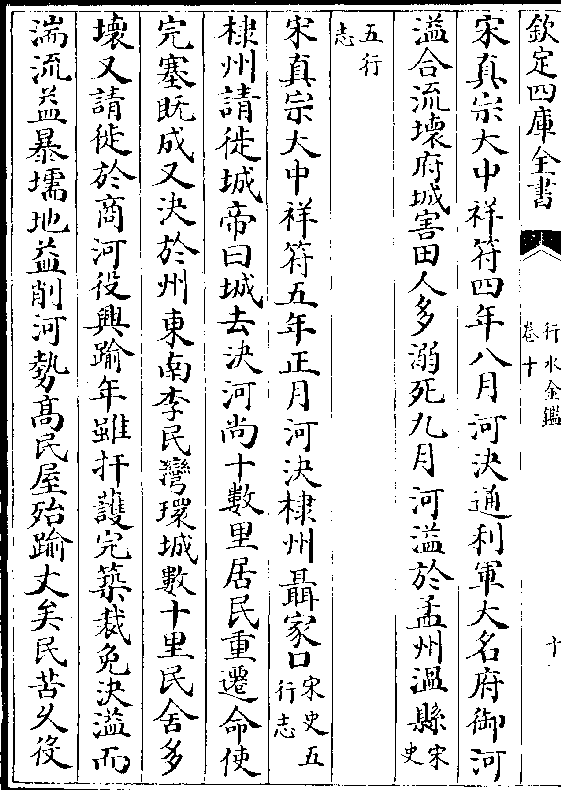 欽定四庫全書
行水金鑑
卷十
十
宋真宗大中祥符四年八月河決通利軍大名府御河
溢合流壞府城害田人多溺死九月河溢於孟州溫縣宋史
五行志
宋真宗大中祥符五年正月河決棣州聶家口宋史五行志
棣州請徙城帝曰城去決河尚十數里居民重遷命使
完塞既成又決於州東南李民灣環城數十里民舍多
壞又請徙於商河役興踰年雖扞護完築裁免決溢而
湍流益暴壖地益削河勢高民屋殆踰丈矣民苦久役